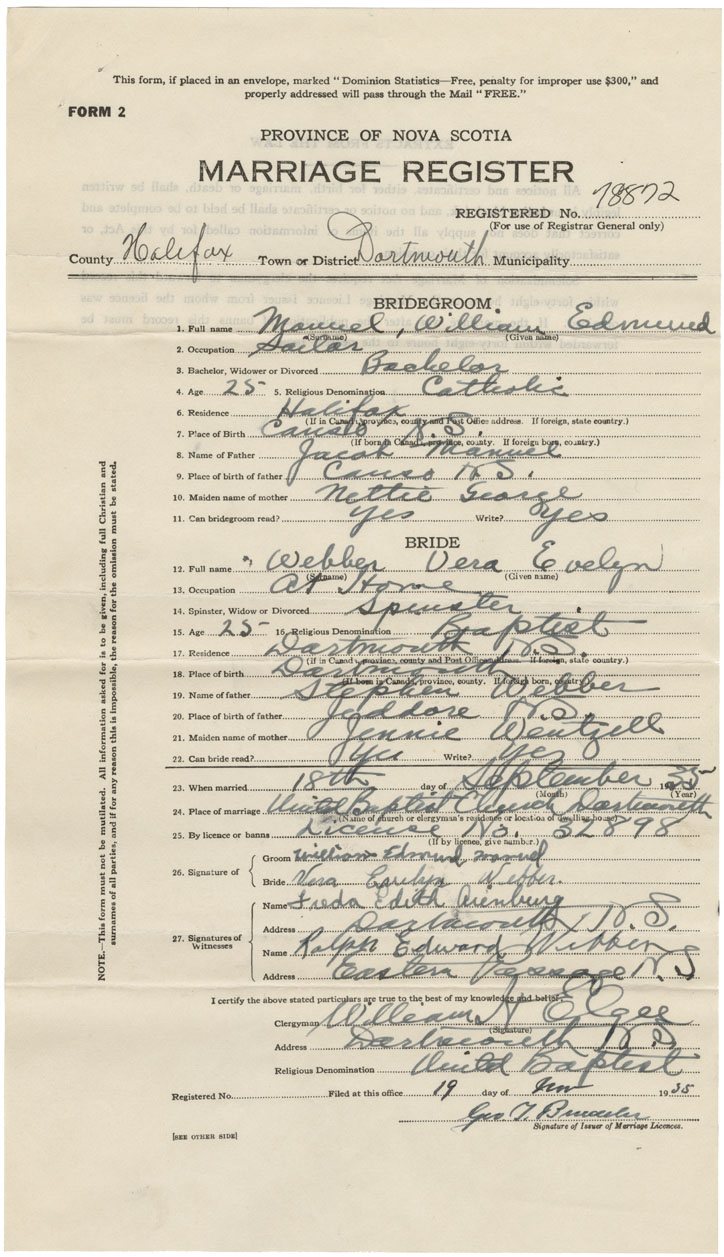 This form, if placed in an envelope, marked "Dominion Statistics—Free, penalty for improper use $300," and
properly addressed will pass through the Mail "FREE."
FORM 2
PROVINCE OF NOVA SCOTIA
MARRIAGE REGISTER
REGISTERED No. 78872
(For use of Registrar General only)
County Halifax Town or District Dartmouth Municipality
BRIDEGROOM.
1. Full name Manuel, William Edmund
(Surname) (Given name)
2. Occupation Sailor
3. Bachelor, Widower or Divorced Bachelor
4. Age 25 5. Religious Denomination Catholic
6. Residence Halifax
(If in Canada, province, county and Post Office address. If foreign, state country.)
7. Place of Birth Canso N.S.
(If born in Canada, province, county. If foreign born, country.)
8. Name of Father Jacob Manuel
9. Place of birth of father Canso N.S.
10. Maiden name of mother Nettie George
11. Can bridegroom read? Yes Write? Yes
BRIDE
12. Full name Webber Vera Evelyn
(Surname) (Given name)
13. Occupation At Home
14. Spinster, Widow or Divorced Spinster
15. Age 25 16. Religious Denomination Baptist
17. Residence Dartmouth N.S.
(If in Canada, province, county and Post Office address. If foreign, state country.)
18. Place of birth Dartmouth
(If born in Canada, province, county. If foreign born, country.)
19. Name of father Stephen Webber
20. Place of birth of father Jeddore N.S.
21. Maiden name of mother Jennie Wentzell
22. Can bride read? Yes Write? Yes
23. When married 18th day of September 1935
(Month) (Year)
24. Place of marriage United Baptist Church Dartmouth
(Name of church or clergyman's residence or location of dwelling house)
25. By licence or banns License No. 32898
(If by licence, give number.)
26. Signature of
Groom William Edmund Manuel
Bride Vera Evelyn Webber.
27. Signatures of Witnesses
Name Freda Edith
Address Dartmouth N.S.
Name Ralph Edward
Address Eastern Passage N.S
I certify the above stated particulars are true to the best of my knowledge and belief.
Clergyman William H Elgee
(Signature)
Address Dartmouth N.S.
Religious Denomination United Baptist
Registered No. Filed at this office 19 day of 1935
Geo T
Signature of Issuer of Marriage Licences.
[SEE OTHER SIDE]
NOTE.—This form must not be mutilated. All information asked for is to be given, including full Christian and
surnames of all parties, and if for any reason this is impossible, the reason for the omission must be stated.